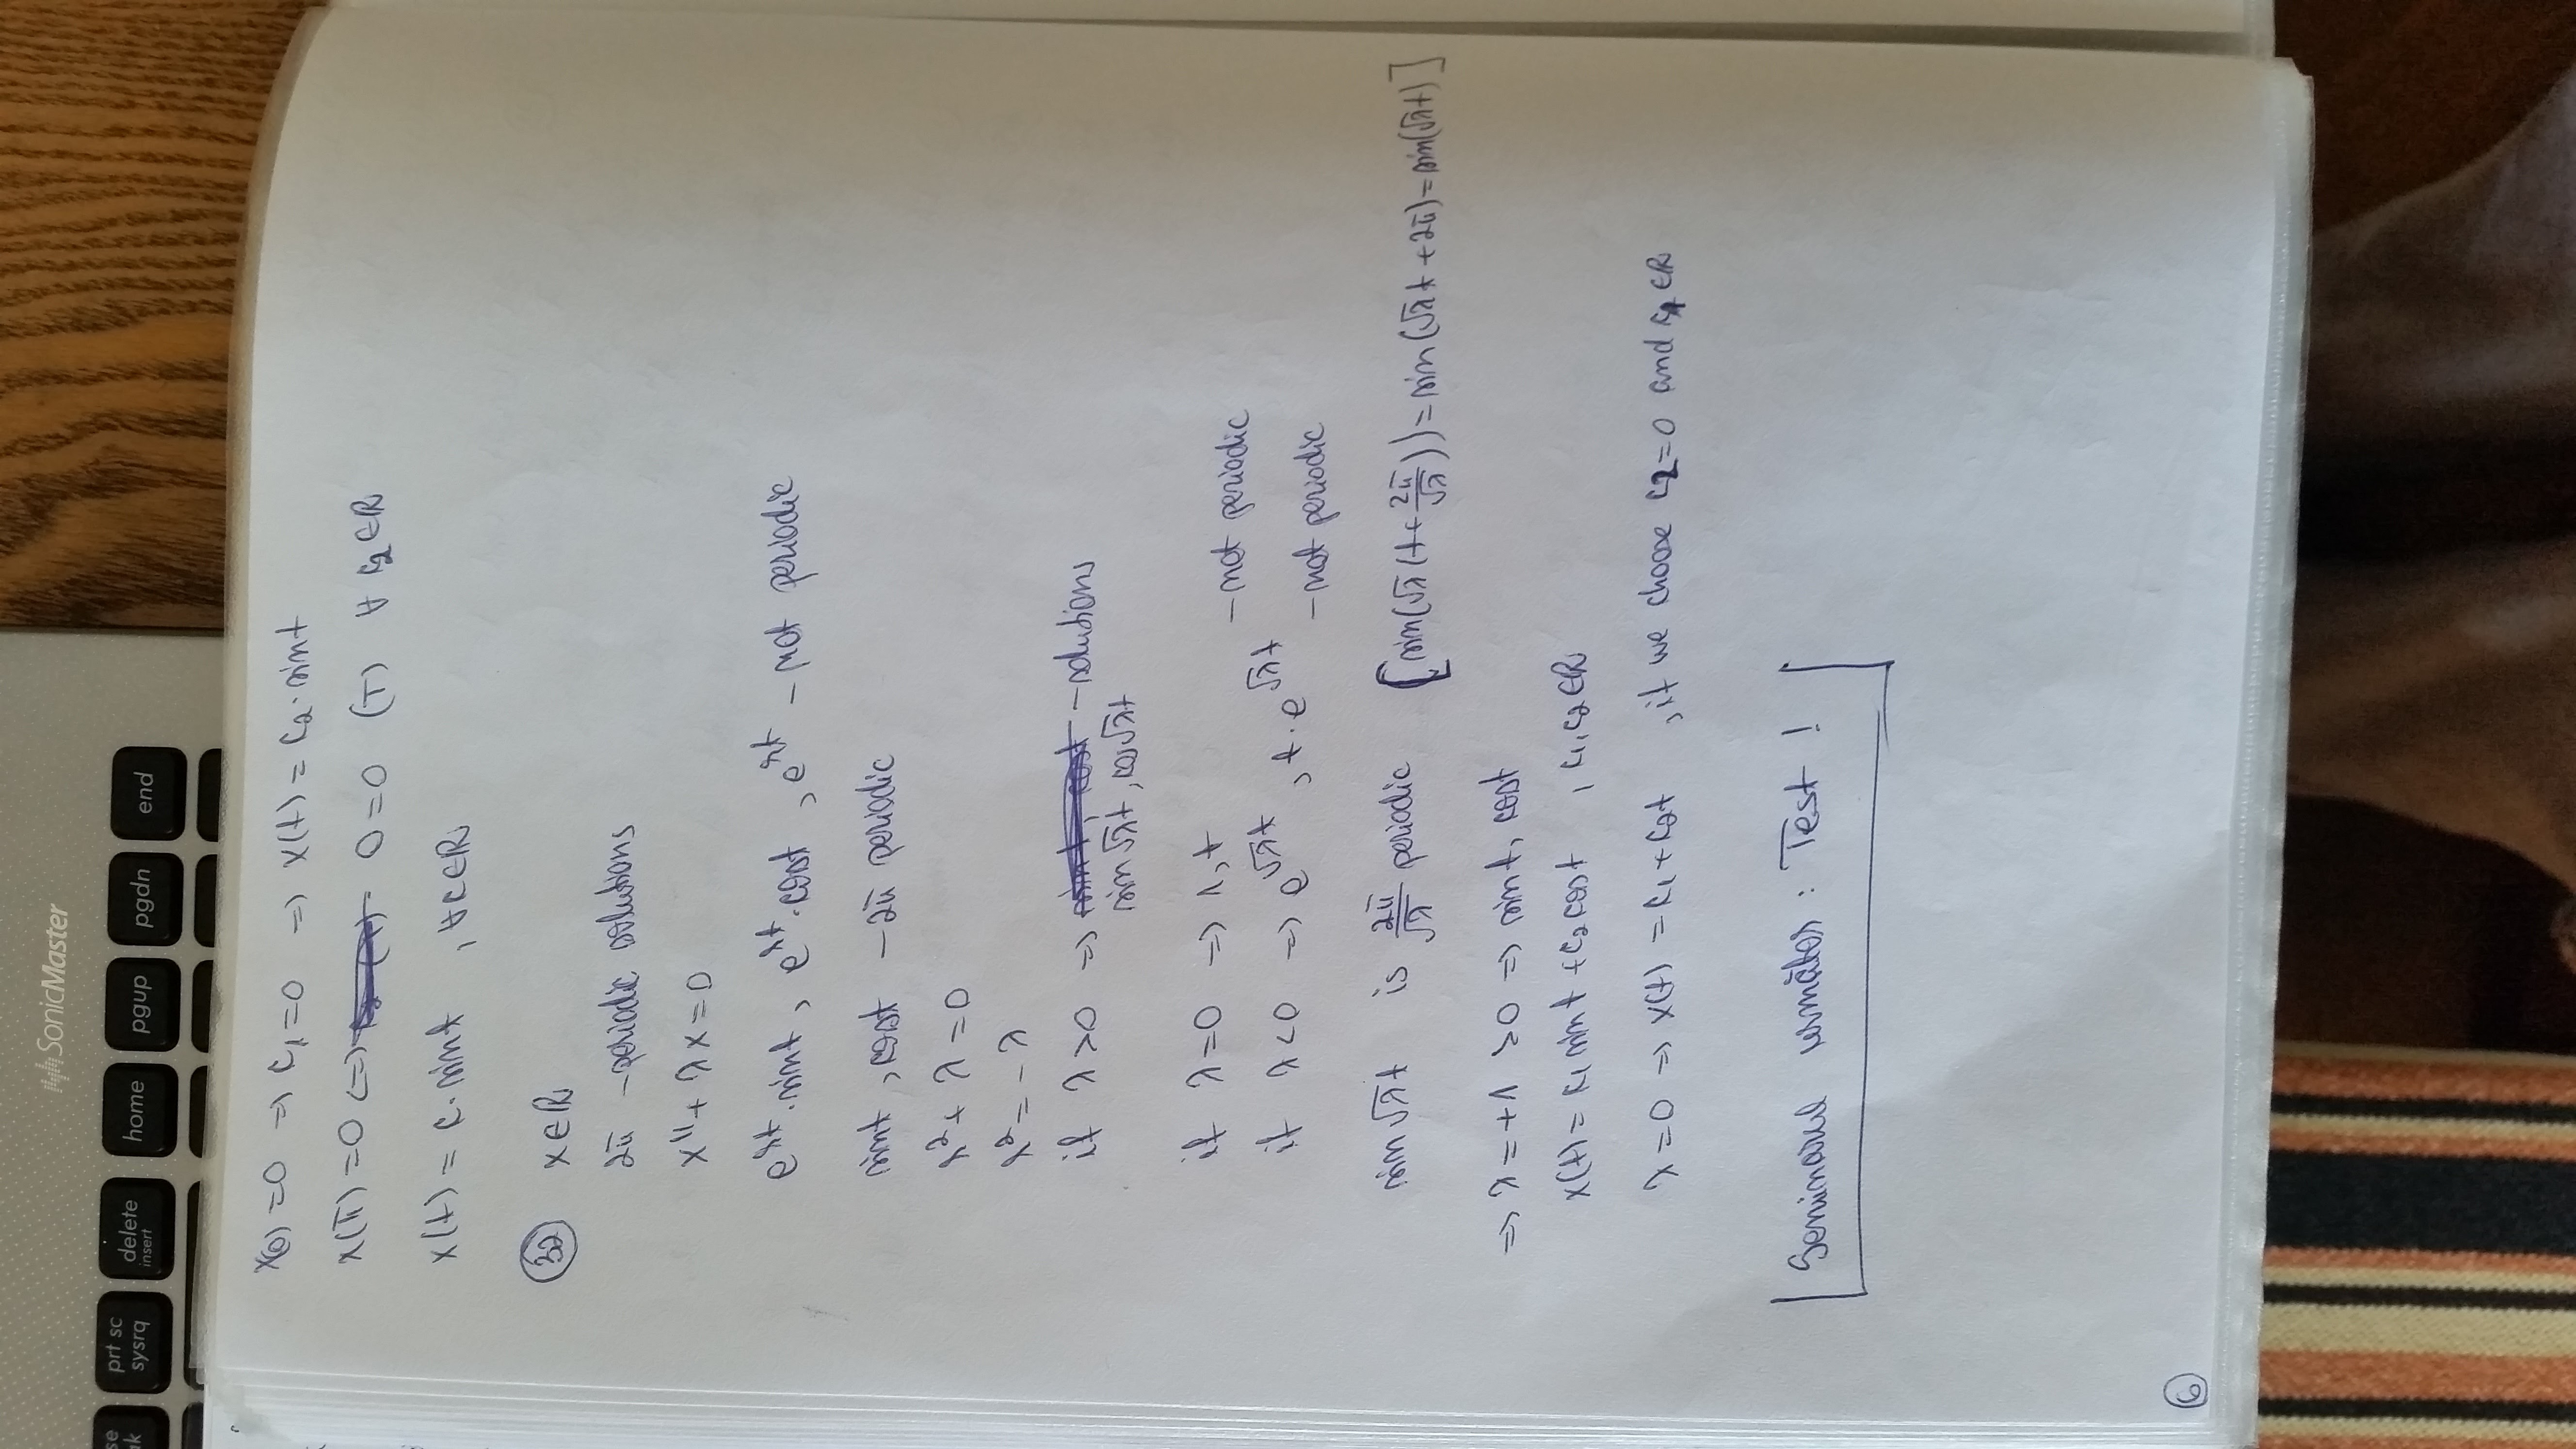 SonicMaster
prt sc
sysrq
delete
insert
home
pgup
pgdn
end
x(0) = 0 => c₁ = 0 => x(t) = c₂ · sint
x(π) = 0 <=> 0 = 0 (T) ∀ c₂ ∈ ℝ
x(t) = c · sint , ∀ c ∈ ℝ
32 x ∈ ℝ
2π - periodic solutions
x'' + λx = 0
e^{rt} · sint, e^{rt} · cost, e^{rt} - not periodic
sint, cost - 2π periodic
r² + λ = 0
r² = - λ
if λ > 0 => - solutions
sin √λt, cos √λt
if λ = 0 => 1, t - not periodic
if λ < 0 => e^{√λt}, t · e^{√λt} - not periodic
sin √λt is 2π/√λ periodic [sin(√λ(t + 2π/√λ)) = sin(√λt + 2π) = sin(√λt)]
=> λ = +1 > 0 => sint, cost
x(t) = c₁ sint + c₂ cost , c₁, c₂ ∈ ℝ
λ = 0 => x(t) = c₁ + c₂t , if we choose c₂ = 0 and c₁ ∈ ℝ
Seminarul următor : Test !
6